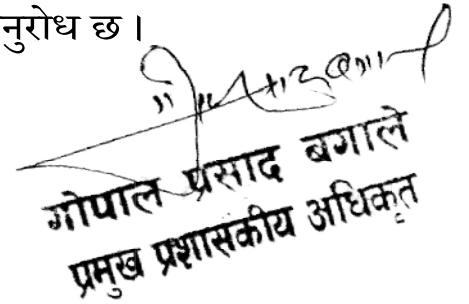 नुरोध छ ।
गोपाल प्रसाद बगाले
प्रमुख प्रशासकीय अधिकृत